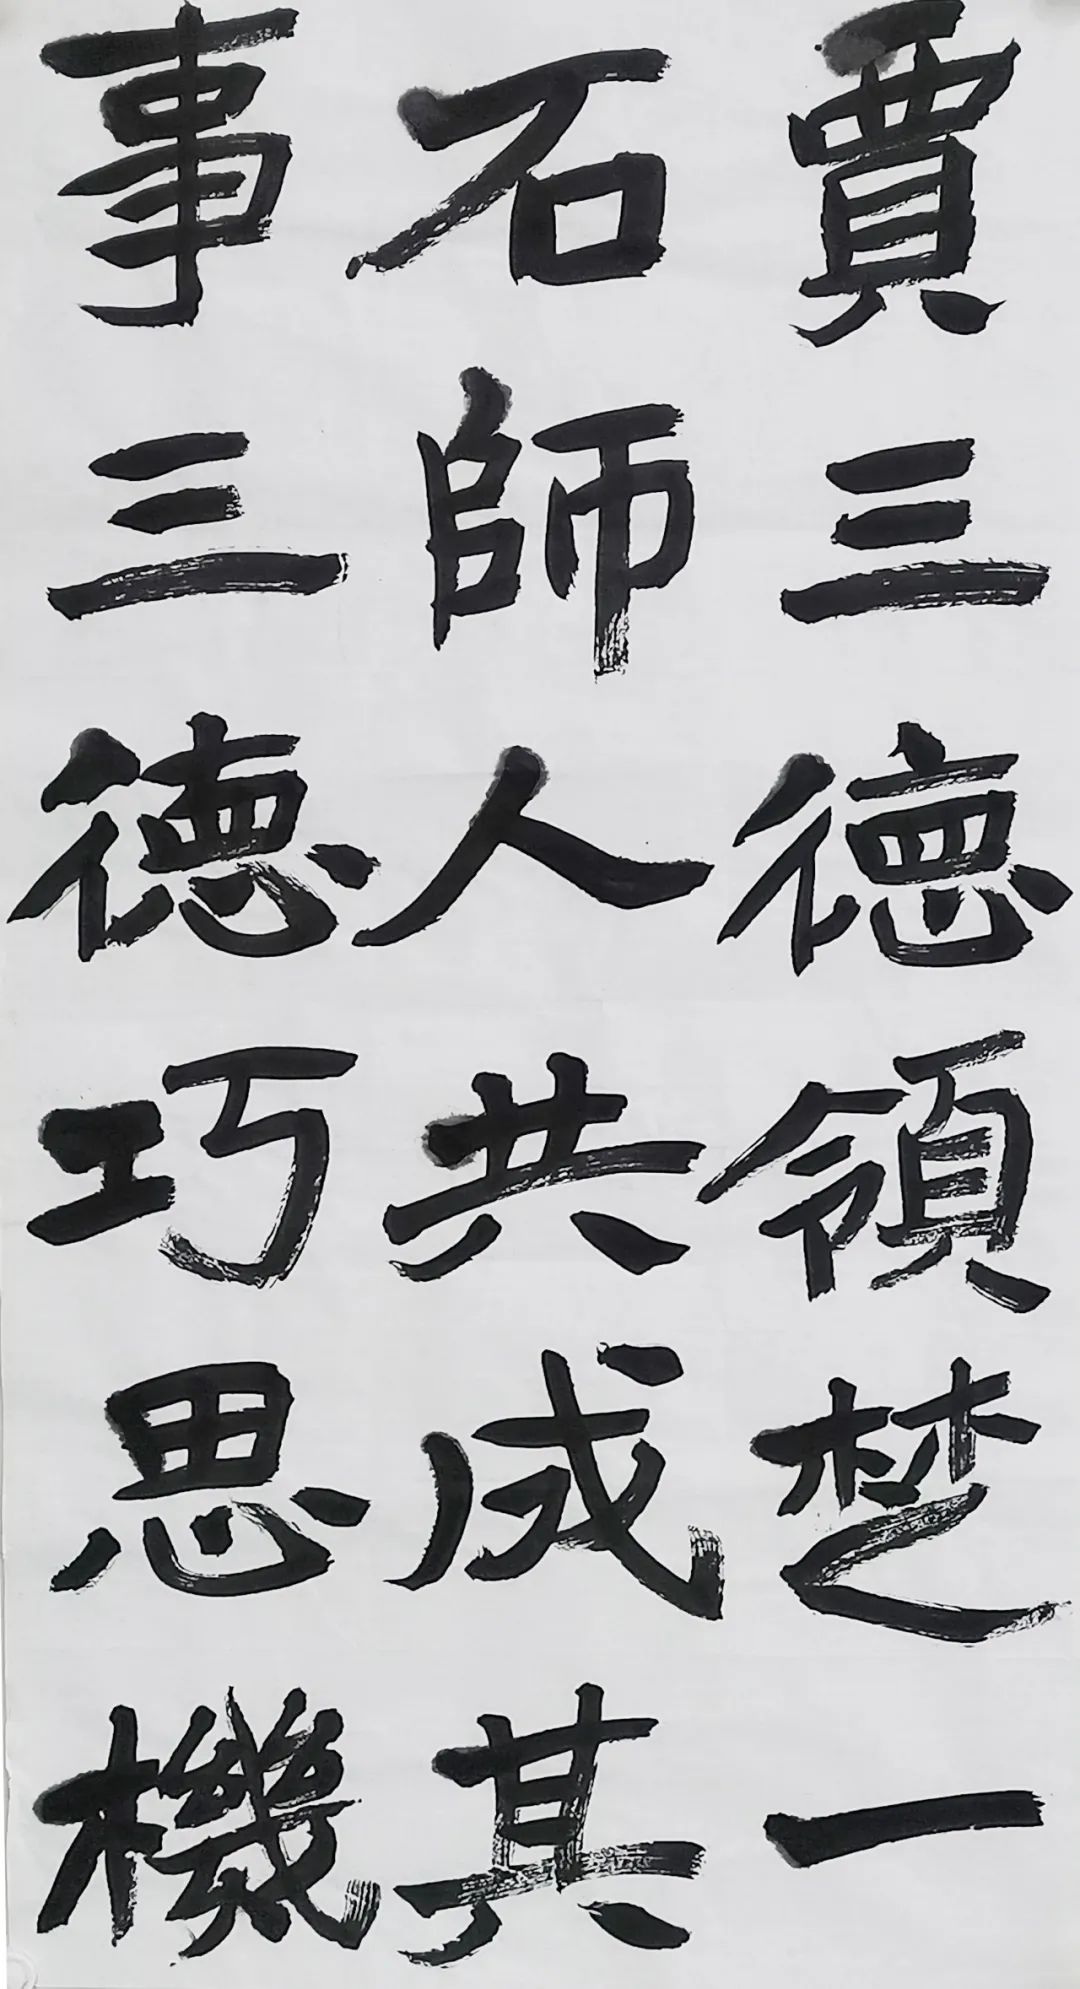 賈三德領楚一
石師人共成其
事三德巧思機